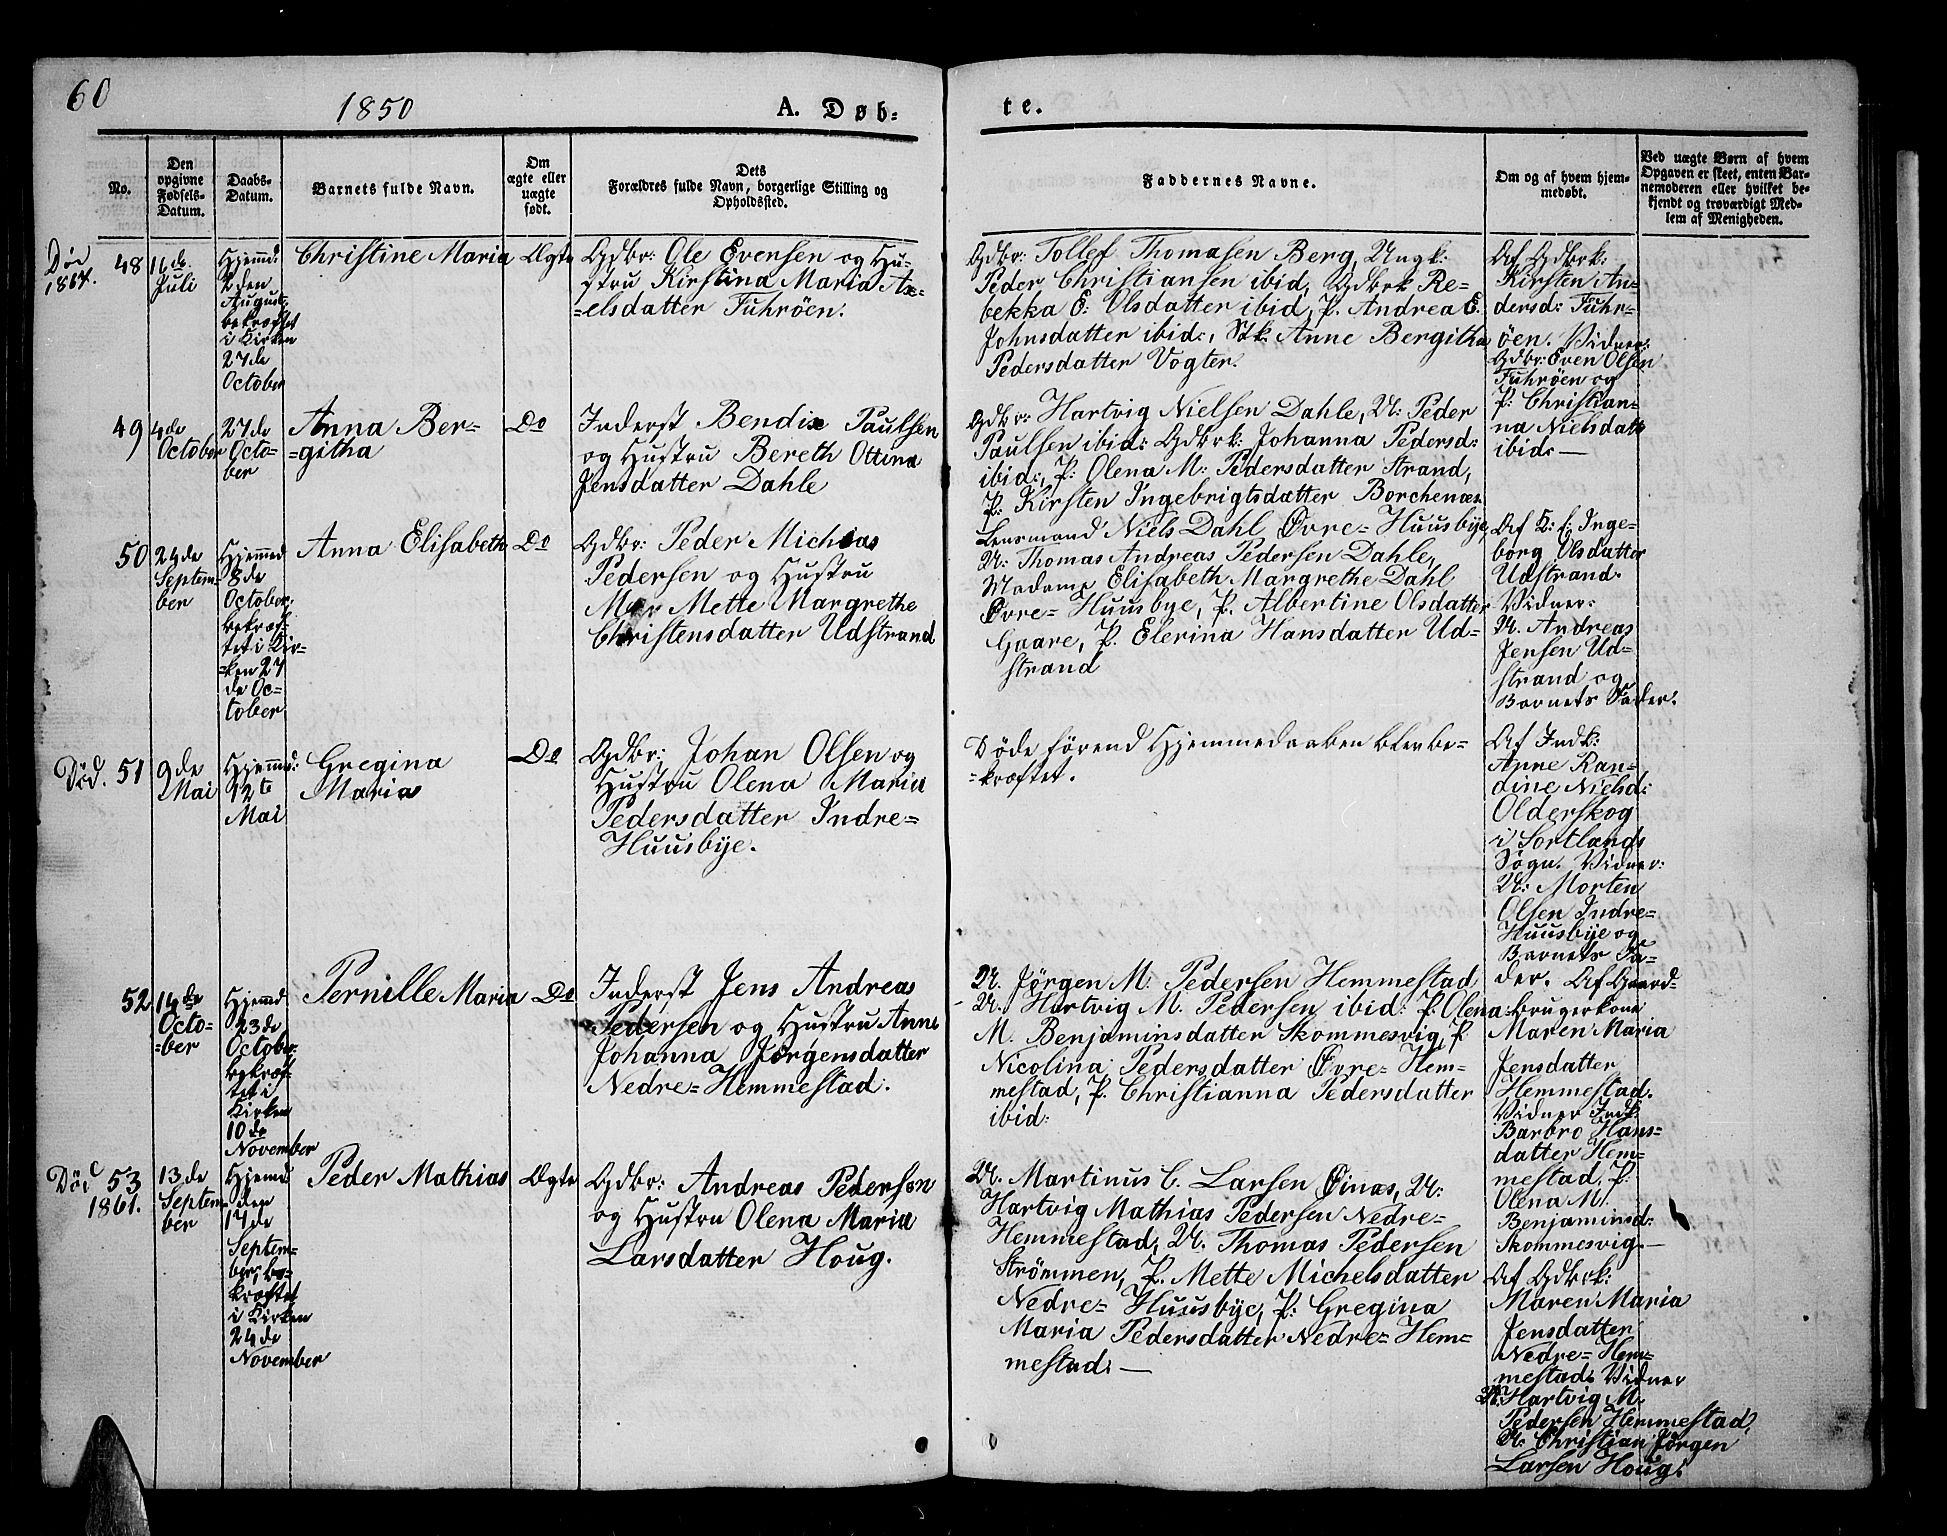 60
1850
A. Døb-
te.
No.
Den
opgivne
Fødsels-
Datum.
Daabs-
Datum.
Barnets fulde Navn.
Om
ægte eller
uægte
født.
Dets
Forældres fulde Navn, borgerlige Stilling og
Opholdssted.
Faddernes Navne.
Om og af hvem hjem-
medøbt.
Ved uægte Børn af hvem
Opgaven er skeet, enten Bar-
nemoderen eller hvilket be-
kjendt og troværdigt Med-
lem af Menigheden.
Död
48
Juli
Hjemmd:
2 den
August,
bekræftet
i Kirken
27de
October
Christine Maria
Ægte
Gdbr: Ole Evensen og Hu-
stru Kirstina Maria Ax-
=elsdatter Fuhröen.
Gdbr: Tollef Thomasen Berg, Ungk:
Peder Christiansen ibid, Gdbrk Re-
bekka E: Olsdatter ibid, P. Andrea E.
Johnsdatter ibid:, Stk: Anne Bergitha
Pedersdatter Vogter.
Af Gdbrk:
Kirsten An-
dersd: Fuhr-
öen. Vidner:
Gdbr: Even Olsen
Fuhröen og
P: Christian-
na Nielsdatt
ibid: —
49
4de
October
27de
Octo-
ber
Anna Ber-
=githa
Do
Inderst Bendix Paulsen
og Hustru Bereth Ottina
Jensdatter Dahle
Gdbr: Hartvig Nielsen Dahle, U: Peder
Paulsen ibid: Gdbrk: Johanna Pedersd:
ibid:, P: Olena M: Pedersdatter Strand,
P: Kirsten Ingebrigtsdatter Borchenæs
50
24de
Septem-
ber
Hjemmd
8de
October,
bekræf-
tet i Kir-
=ken 27
de Oc-
tober
Anna Elisabeth
Do
Gdbr: Peder Michias
Pedersen og Hustru
Mette Margrethe
Christensdatter Udstrand
Lensmand Niels Dahl Øvre=Huusbye,
U: Thomas Andreas Pedersen Dahle,
Madame Elisabeth Margrethe Dahl
Øvre=Huusbye, P. Albertine Olsdatter
Gaare, P. Elerina Hansdatter Ud=
strand
Af K: f: Inge-
borg Olsdatter
Udstrand.
Vidner:
U. Andreas
Jensen Ud=
strand og
Barnets Fader.
Död.
51
9de
Mai
Hjemmd:
12te
Mai
Gregina
Maria
Do
Gdbr: Johan Olsen og
Hustru Olena Maria
Pedersdatter Indre=
Huusbye.
Döde förend Hjemmedaaben blev be-
=kræftet.
Af Indk:
Anne Ran-
dine Nielsd:
Olderskog
i Sortlands
Sogn. Vidner:
U: Morten
Olsen Indre=
Huusbye og
Barnets Fa-
der.
52
14de
Octo-
=ber
Hjemd
23de
October
bekræf-
tet i
Kirken
10de
November
Pernille Maria
Do
Inderst Jens Andreas
Pedersen og Hustru Anne
Johanna Jørgensdatter
Nedre=Hemmestad.
U. Jørgen M. Pedersen Hemmestad
U. Hartvig M. Pedersen ibid: P: Olena
M. Benjaminsdatter Skommesvig, P.
Nicolina Pedersdatter Øvre=Hem-
mestad, P. Christianna Pedersdatter
ibid:
Af Gaard-
brugerkone
Maren Maria
Jensdatter
Hemmestad.
Vidner Indk
Barbro Hans-
datter Hem-
mestad, P:
Olena M.
Benjaminsd:
Skommesvig. —
Död
1861.
53
13de
Septem-
ber
Hjemd
den
17de
Septem-
ber, be-
kræftet
i Kirken
24de
November
Peder Mathias
Ægte
Gdbr: Andreas Pedersen
og Hustru Olena Maria
Larsdatter Houg.
U. Martinus C. Larsen Øinæs, U:
Hartvig Mathias Pedersen Nedre=
Hemmestad, U. Thomas Pedersen
Strömmen, P. Mette Michelsdatter
Nedre=Huusbye, P: Gregina
Maria Pedersdatter Nedre=Hem-
mestad: —
Af Gdbrk:
Maren Maria
Jensdatter
Nedre=Hem-
mestad: Vidner
U. Hartvig M.
Pedersen Hemmestad,
U. Christian Jørgen
Larsen Houg: